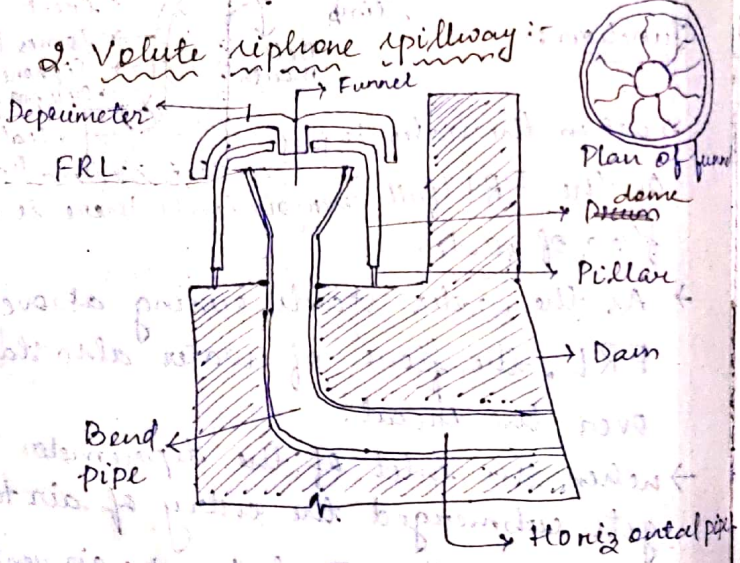 2. Volute siphone spillway:-
Funnel
Deperimeter
FRL.
Plan of funnel
dome
Drum
Pillar
Dam
Bend
pipe
Horizontal pipe